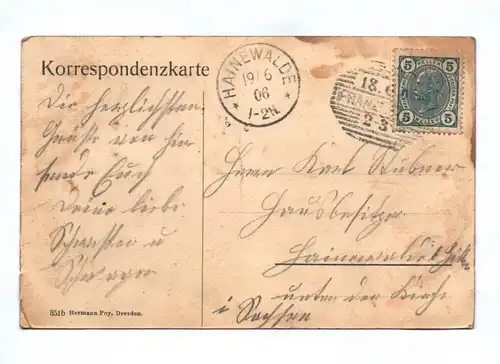 Korrespondenzkarte
HAINEWALDE
19/6
06
1-2N.
18.6
FRANZ
2-3
5 5
HELLER HELLER
5 5
Die herzlichsten
Grüsse von hier
sendet Euch
Deine liebe
Schwester u
Schwager
Herrn Karl Hübner
Hausbesitzer
Hainewalde
unter der Kirche
i Sachsen
351b Hermann Poy, Dresden.